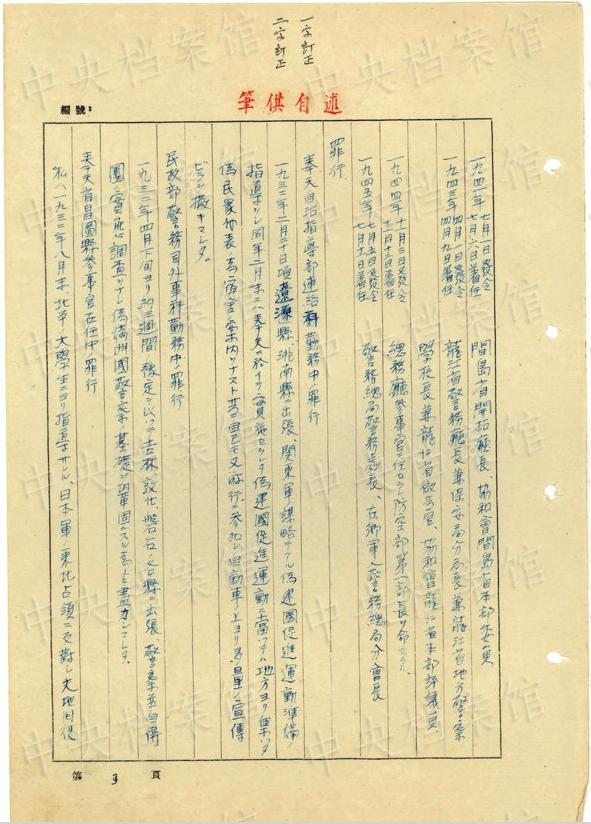 一字訂正
二字訂正
筆供自述
編號:
一九四一年 七月一日發令
七月六日着任
間島省開拓廳長、協和會間島省本部委員
一九四三年 四月一日發令
四月九日着任
龍江省警務廳長兼保安局分局長兼龍江省地方警察
學校長兼龍江省衛兵官、協和會龍江省本部評議員
一九四四年 十一月三日發令
十一月十三日着任
總務廳參事官ニ任ゼラレ防空部第一部長ヲ命ゼラル
一九四五年 七月五日發令
七月十日着任
警務總局警務處長、在鄉軍人警務總局分會長
罪行
奉天自治指導部連絡科勤務中ノ罪行
一九三二年二月二十日頃遼源縣、洮南縣ニ出張、関東軍謀略デアル偽建國促進運動準備ノ
指導ヲシ同年二月末ニハ奉天ニ於イテ實施セラレタ偽建國促進運動ニ當ツテハ地方ヨリ集ツタ
偽民衆代表者ニ宿舎案内ヲナスト共ニ自己モ又游行ニ參加シ自動車ノ上ヨリ多量ノ宣傳
ビラヲ撒キマシタ。
民政部警務司外事科勤務中ノ罪行
一九三二年四月下旬ヨリ約三週間ノ豫定ヲ以ツテ吉林、敦化、磐石ノ各縣ニ出張、警察並自衛
團ノ實況調査ヲナシ偽満洲國警察ノ基礎ヲ鞏固ニスル為メ盡力シマシタ。
奉天省昌圖縣參事官在任中ノ罪行
私ハ一九三二年八月末、北平ノ大學生ニヨリ指導サレ、日本軍ノ東北占領ニ反對シ失地回復
第 3 頁
中央档案馆